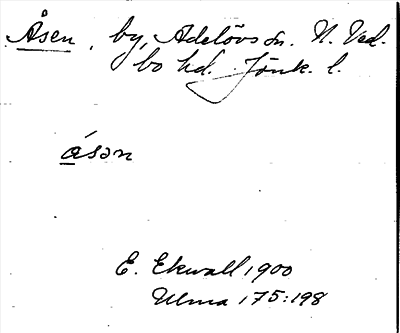 Åsen, by, Adelövs sn. N. Ved-
bo hd. Jönk. l.
ásən
E. Ekwall 1900
Ulma 175:198